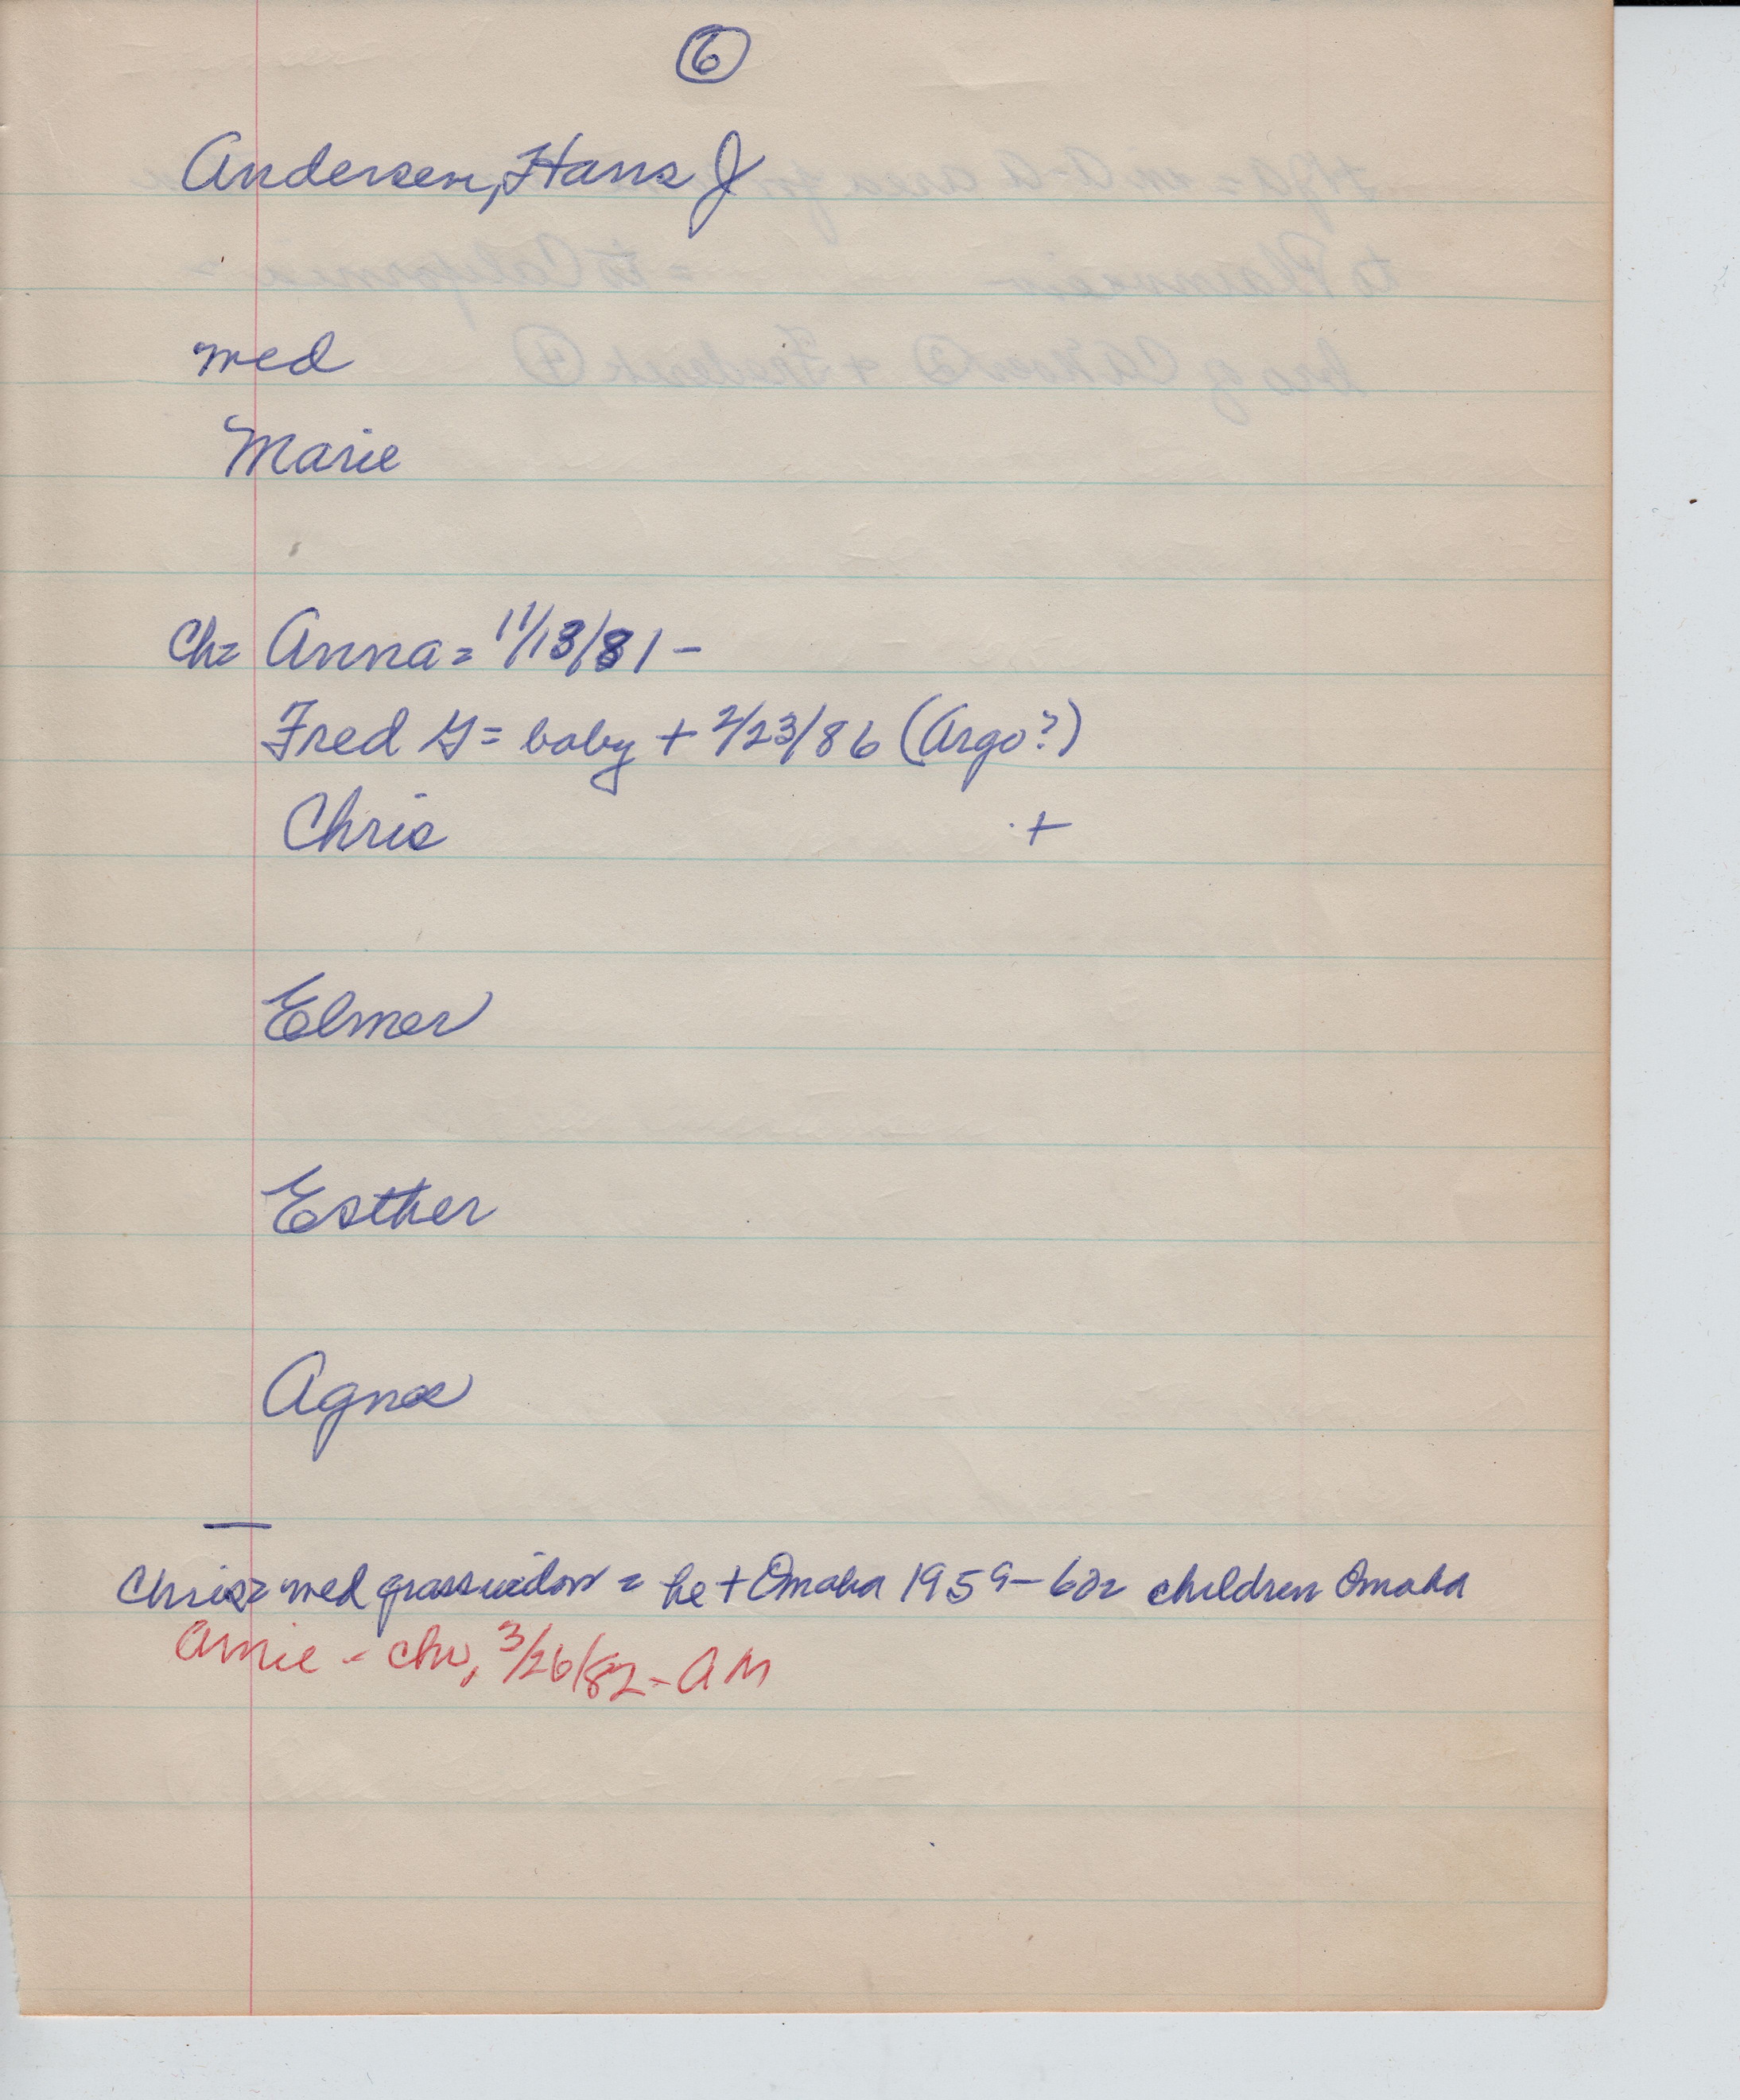 6
Andersen, Hans J
med
Marie
Ch= Anna = 11/13/81 -
Fred G = baby + 2/23/86 (Argo?)
Chris +
Elmer
Esther
Agnes
Chris= med grasswidow = he + Omaha 1959-60= children Omaha
- chr, 3/26/82 - AM